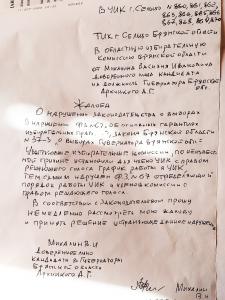 В УИК г. Сельцо № 860, 861, 862,
863, 864, 865, 866
867, 868,
ТИК г. Сельцо Брянской области
В областную избирательную
комиссию Брянской области
от Михалина Василия Ивановича
доверенного лица кандидата
на должность Губернатора Брянской
Архицкого А.Г. обл.
Жалоба
О нарушении законодательства о выборах
В нарушение Об основных гарантиях
избирательных прав Закона Брянской области
37-З О выборах Губернатора Брянской области
Участковые избирательные комиссии, по неизвестной
причине установили для членов УИК с правом
решающего голоса график работы в УИК,
тем самым нарушили ФЗ № 67 определяющий
порядок работы УИК и членов комиссии с
правом решающего голоса.
В соответствии с Законом прошу
немедленно рассмотреть мою жалобу
и принять решение устраняющее данные нарушения.
Михалин В.И
доверенное лицо
кандидата в Губернаторы
Брянской области
Архицкого А.Г.
Михалин
В.И.